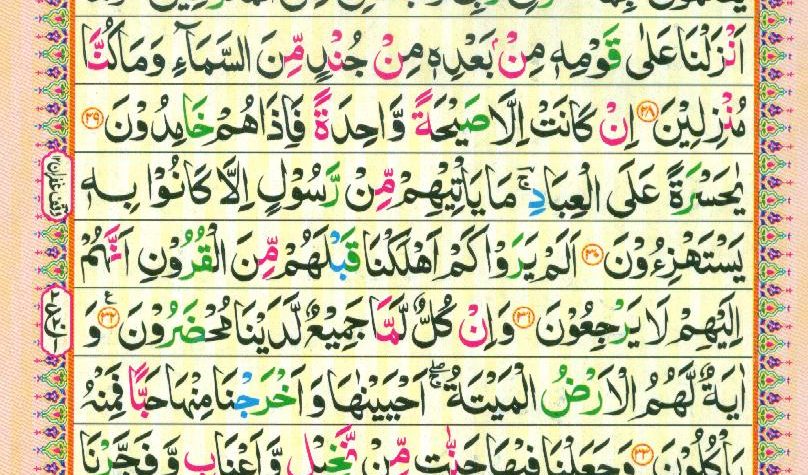 اَنْزَلْنَا عَلٰى قَوْمِهٖ مِنْۢ بَعْدِهٖ مِنْ جُنْدٍ مِّنَ السَّمَآءِ وَمَا كُنَّا
مُنْزِلِيْنَ ۝۲۸ اِنْ كَانَتْ اِلَّا صَيْحَةً وَّاحِدَةً فَاِذَا هُمْ خَامِدُوْنَ ۝۲۹
يٰحَسْرَةً عَلَى الْعِبَادِ ۚ مَا يَاْتِيْهِمْ مِّنْ رَّسُوْلٍ اِلَّا كَانُوْا بِهٖ
يَسْتَهْزِءُوْنَ ۝۳۰ اَلَمْ يَرَوْا كَمْ اَهْلَكْنَا قَبْلَهُمْ مِّنَ الْقُرُوْنِ اَنَّهُمْ
اِلَيْهِمْ لَا يَرْجِعُوْنَ ۝۳۱ وَاِنْ كُلٌّ لَّمَّا جَمِيْعٌ لَّدَيْنَا مُحْضَرُوْنَ ۝۳۲ وَ
اٰيَةٌ لَّهُمُ الْاَرْضُ الْمَيْتَةُ ۖۚ اَحْيَيْنٰهَا وَاَخْرَجْنَا مِنْهَا حَبًّا فَمِنْهُ
يَاْكُلُوْنَ ۝۳۳ وَجَعَلْنَا فِيْهَا جَنّٰتٍ مِّنْ نَّخِيْلٍ وَّاَعْنَابٍ وَّفَجَّرْنَا